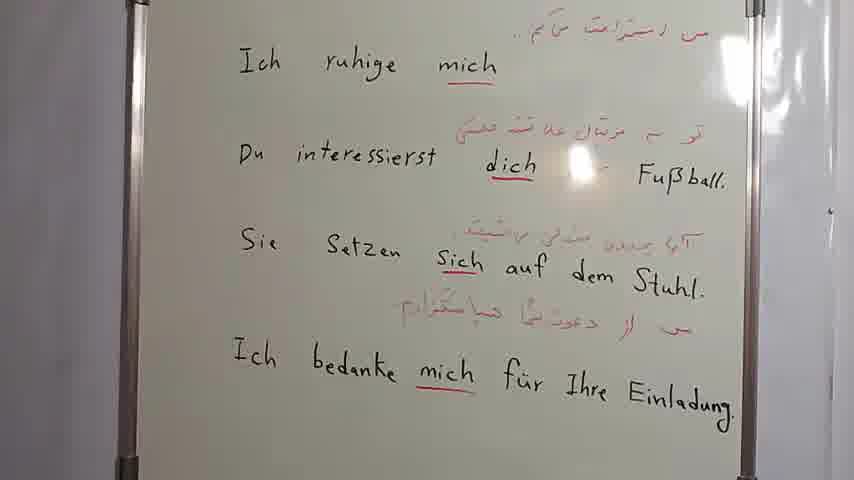 من استراحت می‌کنم..
Ich ruhige mich
تو به فوتبال علاقه مندی
Du interessierst dich Fußball.
آنها بر روی صندلی می نشینند.
Sie setzen sich auf dem Stuhl.
من از دعوت شما سپاسگزارم
Ich bedanke mich für Ihre Einladung.